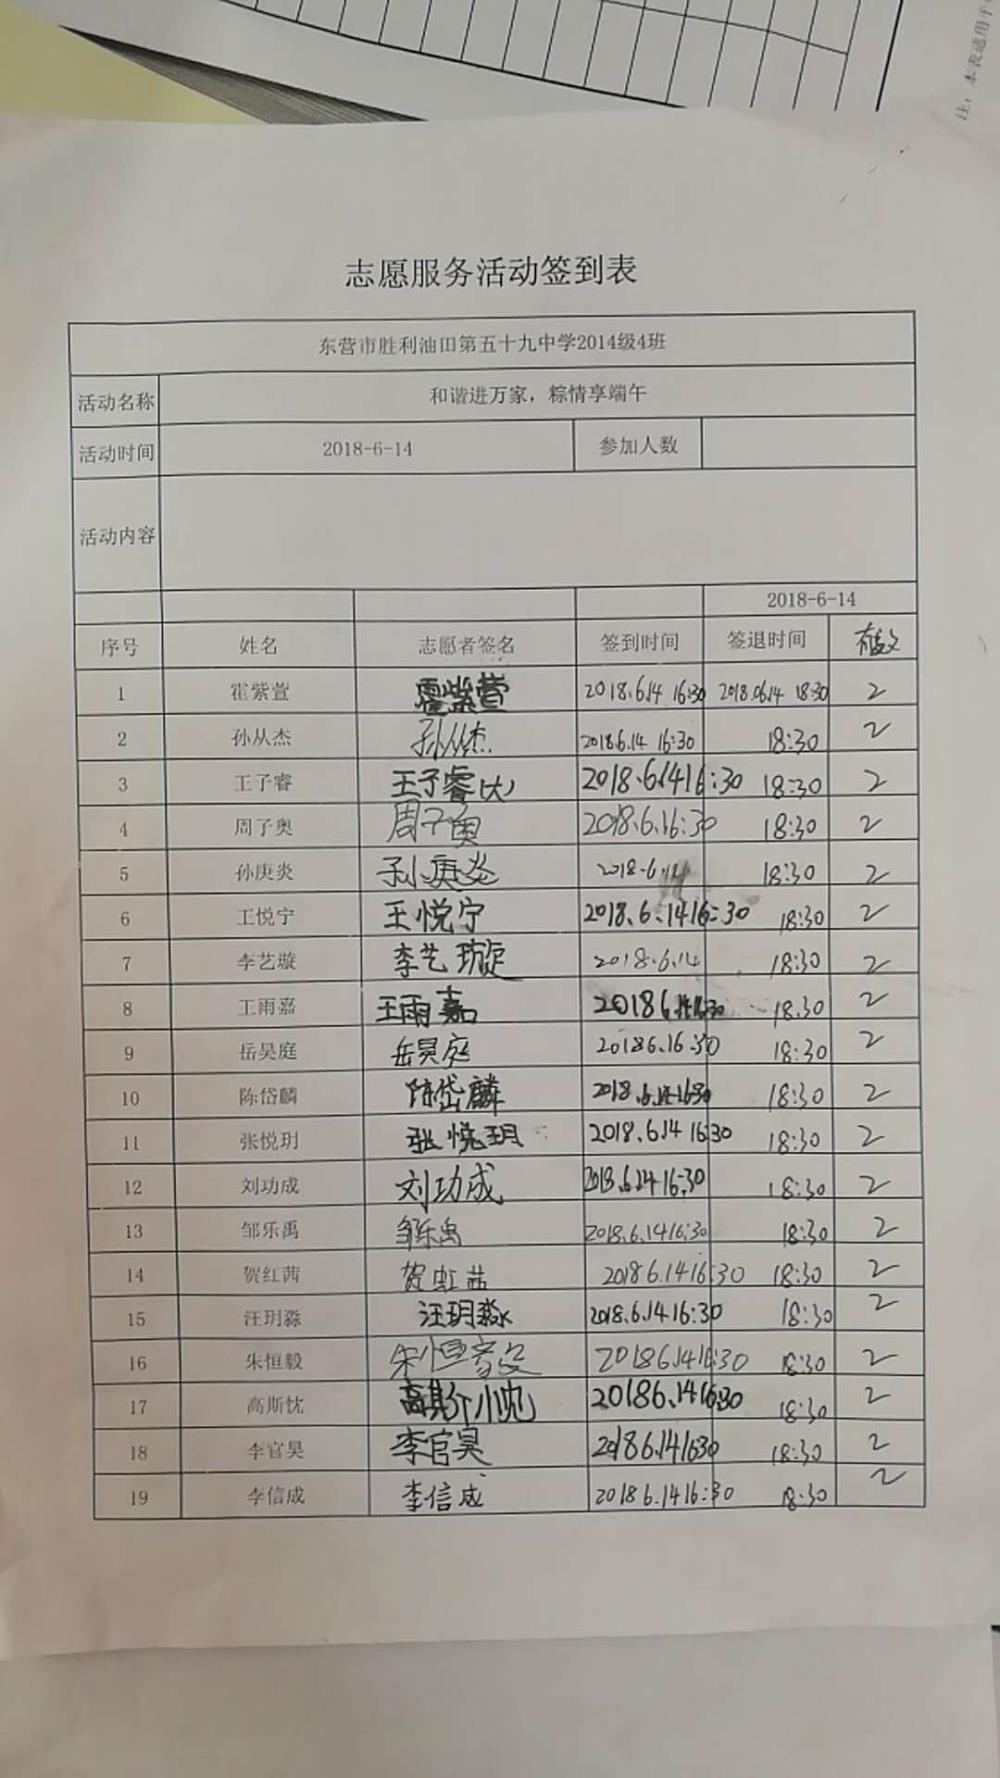 注：本表适用于
志愿服务活动签到表
东营市胜利油田第五十九中学2014级4班
活动名称 和谐进万家，粽情享端午
活动时间 2018-6-14 参加人数
活动内容
2018-6-14
序号 姓名 志愿者签名 签到时间 签退时间
1 霍紫萱 霍紫萱 2018.6.14 16:30 2018.06.14 18:30 2
2 孙从杰 孙从杰 2018.6.14 16:30 18:30 2
3 王子睿 王子睿(大) 2018.6.14 16:30 18:30 2
4 周子奥 周子奥 2018.6.16:30 18:30 2
5 孙庚炎 孙庚炎 2018-6.14 18:30 2
6 王悦宁 王悦宁 2018.6.14 16:30 18:30 2
7 李艺璇 李艺璇 2018.6.14 18:30 2
8 王雨嘉 王雨嘉 2018 6.14 16:30 18:30 2
9 岳昊庭 岳昊庭 2018 6.16:30 18:30 2
10 陈岱麟 陈岱麟 2018.6.14 16:30 18:30 2
11 张悦玥 张悦玥 2018.6.14 16:30 18:30 2
12 刘功成 刘功成 2018.6.14 16:30 18:30 2
13 邹乐禹 邹乐禹 2018.6.14 16:30 18:30 2
14 贺红茜 贺虹茜 2018 6.14 16:30 18:30 2
15 汪玥淼 汪玥淼 2018.6.14 16:30 18:30 2
16 朱恒毅 朱恒毅 2018 6.14 16:30 18:30 2
17 高斯忱 高斯忱 2018 6.14 16:30 18:30 2
18 李官昊 李官昊 2018 6.14 1630 18:30 2
19 李信成 李信成 2018 6.14 16:30 18:30 2